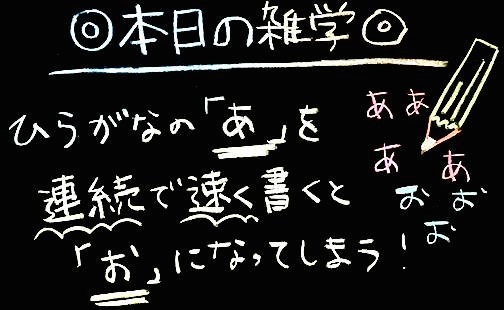 ◎本日の雑学◎
ひらがなの「あ」を
連続で速く書くと
「お」になってしまう!
ああ
ああ
おお
お